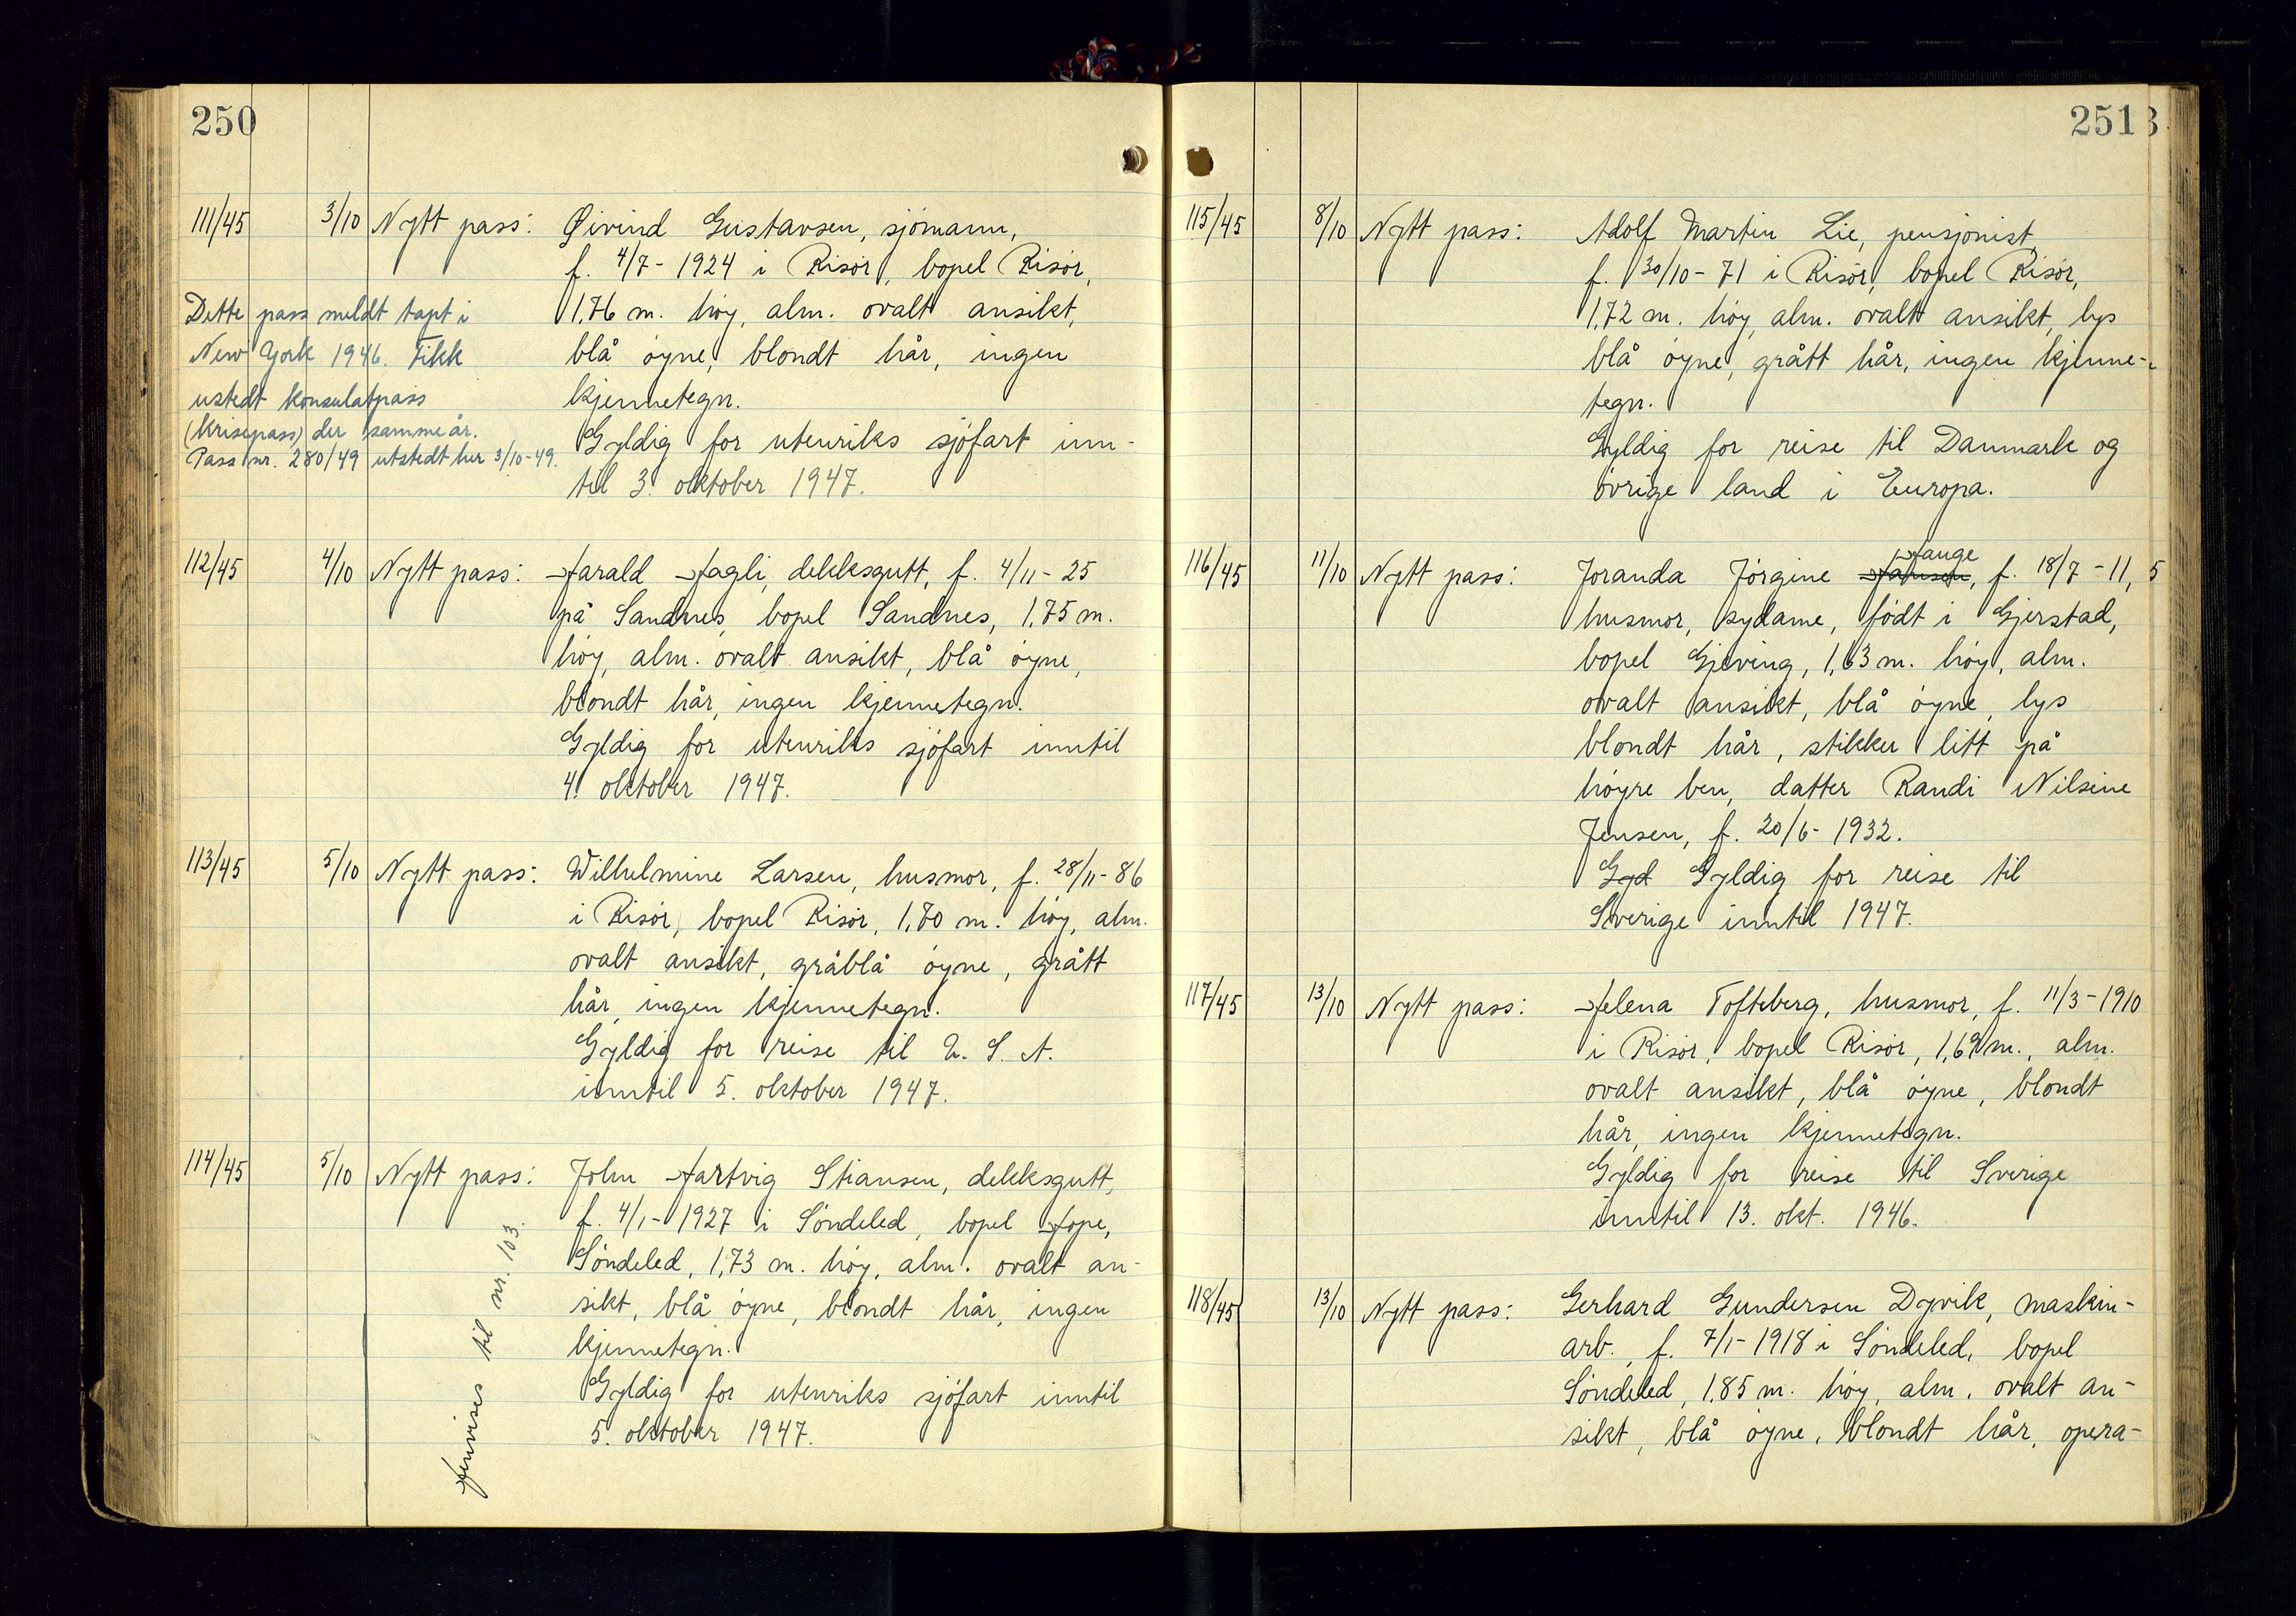 250
111/45 3/10 Nytt pass: Øivind Gustavsen, sjömann,
f. 4/7 - 1924 i Risör, bopel Risör,
1,76 m. höy, alm. ovalt ansikt,
blå öyne, blondt hår, ingen
kjennetegn.
Gyldig for utenriks sjöfart inn-
til 3. oktober 1947.
Dette pass meldt tapt i
New York 1946. Fikk
ustedt konsulatpass
(krisepass) der samme år.
Pass nr. 280/49 utstedt her 3/10-49.
112/45 4/10 Nytt pass: Harald Hagli, dekksgutt, f. 4/11 - 25
på Sandnes, bopel Sandnes, 1,75 m.
höy, alm. ovalt ansikt, blå öyne,
blondt hår, ingen kjennetegn.
Gyldig for utenriks sjöfart inntil
4. oktober 1947.
113/45 5/10 Nytt pass: Wilhelmine Larsen, husmor, f. 28/11 - 86
i Risör, bopel Risör, 1,80 m. höy, alm.
ovalt ansikt, gråblå öyne, grått
hår, ingen kjennetegn.
Gyldig for reise til U. S. A.
inntil 5. oktober 1947.
114/45 5/10 Nytt pass: John Hartvig Stiansen, dekksgutt,
f. 4/1 - 1927 i Söndeled, bopel Hope,
Söndeled, 1,73 m. höy, alm. ovalt an-
sikt, blå öyne, blondt hår, ingen
kjennetegn.
Gyldig for utenriks sjöfart inntil
5. oktober 1947.
Henvises til nr. 103.
251
115/45 8/10 Nytt pass: Adolf Martin Lie, pensjonist,
f. 30/10 - 71 i Risör, bopel Risör,
1,72 m. höy, alm. ovalt ansikt, lys
blå öyne, grått hår, ingen kjenne-
tegn.
Gyldig for reise til Danmark og
övrige land i Europa.
Hauge
116/45 11/10 Nytt pass: Joranda Jörgine Hansen, f. 18/7 - 11,
husmor, sydame, födt i Gjerstad,
bopel Gjeving, 1,63 m. höy, alm.
ovalt ansikt, blå öyne, lys
blondt hår, stikker litt på
höyre ben, datter Randi Nilsine
Jensen, f. 20/6 - 1932.
Gyd Gyldig for reise til
Sverige inntil 1947.
117/45 13/10 Nytt pass: Helena Tofteberg, husmor, f. 11/3 - 1910
i Risör, bopel Risör, 1,69 m., alm.
ovalt ansikt, blå öyne, blondt
hår, ingen kjennetegn.
Gyldig for reise til Sverige
inntil 13. okt. 1946.
118/45 13/10 Nytt pass: Gerhard Gundersen Dyvik, maskin-
arb., f. 7/1 - 1918 i Söndeled, bopel
Söndeled, 1.85 m. höy, alm. ovalt an-
sikt, blå öyne, blondt hår, opera-